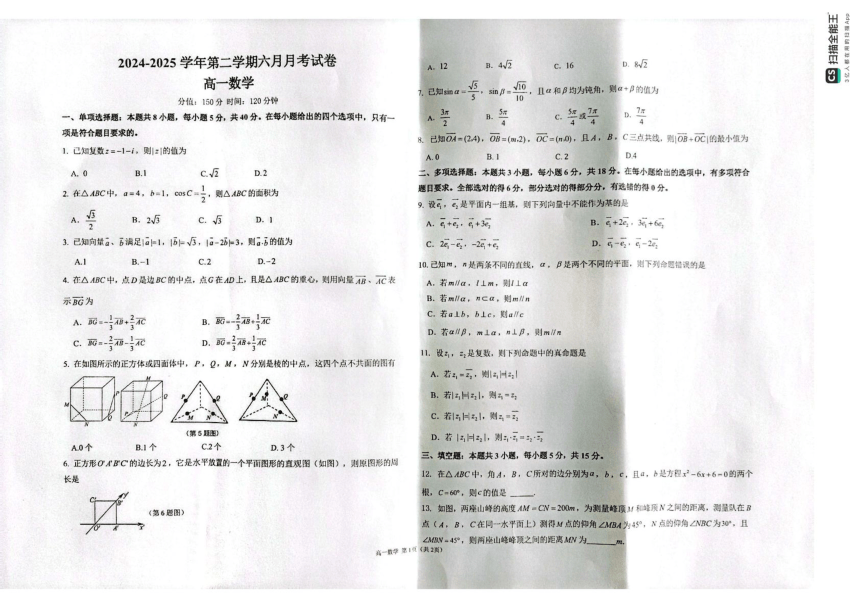 2024-2025 学年第二学期六月月考试卷
高一数学
分值：150 分 时间：120 分钟
一、单项选择题：本题共 8 小题，每小题 5 分，共 40 分。在每小题给出的四个选项中，只有一
项是符合题目要求的。
1. 已知复数 z=-1-i，则|z|的值为
A. 0 B.1 C.√2 D.2
2. 在△ABC中，a=4，b=1，cosC=1/2，则△ABC的面积为
A. √3/2 B. 2√3 C. √3 D. 1
3. 已知向量a，b满足|a|=1，|b|=√3，|a-2b|=3，则a·b的值为
A.1 B.-1 C.2 D.-2
4. 在△ABC中，点D是边BC的中点，点G在AD上，且是△ABC的重心，则用向量AB、AC表
示BG为
A. BG=-1/3AB+2/3AC B. BG=-2/3AB+1/3AC
C. BG=-2/3AB-1/3AC D. BG=2/3AB+1/3AC
5. 在如图所示的正方体或四面体中，P，Q，M，N分别是棱的中点，这四个点不共面的图有
（第 5 题图）
A.0 个 B.1 个 C.2 个 D. 3 个
6. 正方形O'A'B'C'的边长为2，它是水平放置的一个平面图形的直观图（如图），则原图形的周
长是
（第 6 题图）
A. 12 B. 4√2 C. 16 D. 8√2
7. 已知sinα=√5/5，sinβ=√10/10，且α和β均为钝角，则α+β的值为
A. 3π/2 B. 5π/4 C. 5π/4或7π/4 D. 7π/4
8. 已知OA=(2,4)，OB=(m,2)，OC=(n,0)，且A，B，C三点共线，则|OB+OC|的最小值为
A. 0 B. 1 C. 2 D.4
二、多项选择题：本题共 3 小题，每小题 6 分，共 18 分。在每小题给出的选项中，有多项符合
题目要求。全部选对的得 6 分，部分选对的得部分分，有选错的得 0 分。
9. 设e₁，e₂是平面内一组基，则下列向量中不能作为基的是
A. e₁+e₂，e₁+3e₂ B. e₁+2e₂，3e₁+6e₂
C. 2e₁-e₂，-2e₁+e₂ D. e₁-e₂，e₁-2e₂
10. 已知m，n是两条不同的直线，α，β是两个不同的平面，则下列命题错误的是
A. 若m//α，l⊥m，则l⊥α
B. 若m//α，n⊂α，则m//n
C. 若a⊥b，b⊥c，则a//c
D. 若α//β，m⊥α，n⊥β，则m//n
11. 设z₁，z₂是复数，则下列命题中的真命题是
A. 若z₁=z̄₂，则|z₁|=|z₂|
B. 若|z₁|=|z₂|，则z₁=z₂
C. 若|z₁|=|z₂|，则z₁=z̄₂
D. 若 |z₁|=|z₂|，则z₁·z̄₁=z₂·z̄₂
三、填空题：本题共 3 小题，每小题 5 分，共 15 分。
12. 在△ABC中，角A，B，C所对的边分别为a，b，c，且a，b是方程x²-6x+6=0的两个
根，C=60°，则c的值是 ______.
13. 如图，两座山峰的高度AM=CN=200m，为测量峰顶M和峰顶N之间的距离，测量队在B
点（A，B，C在同一水平面上）测得M点的仰角∠MBA为45°，N点的仰角∠NBC为30°，且
∠MBN=45°，则两座山峰峰顶之间的距离MN为______m.
高一数学 第 1 页（共 2 页）
CS 扫描全能王
3亿人都在用的扫描App